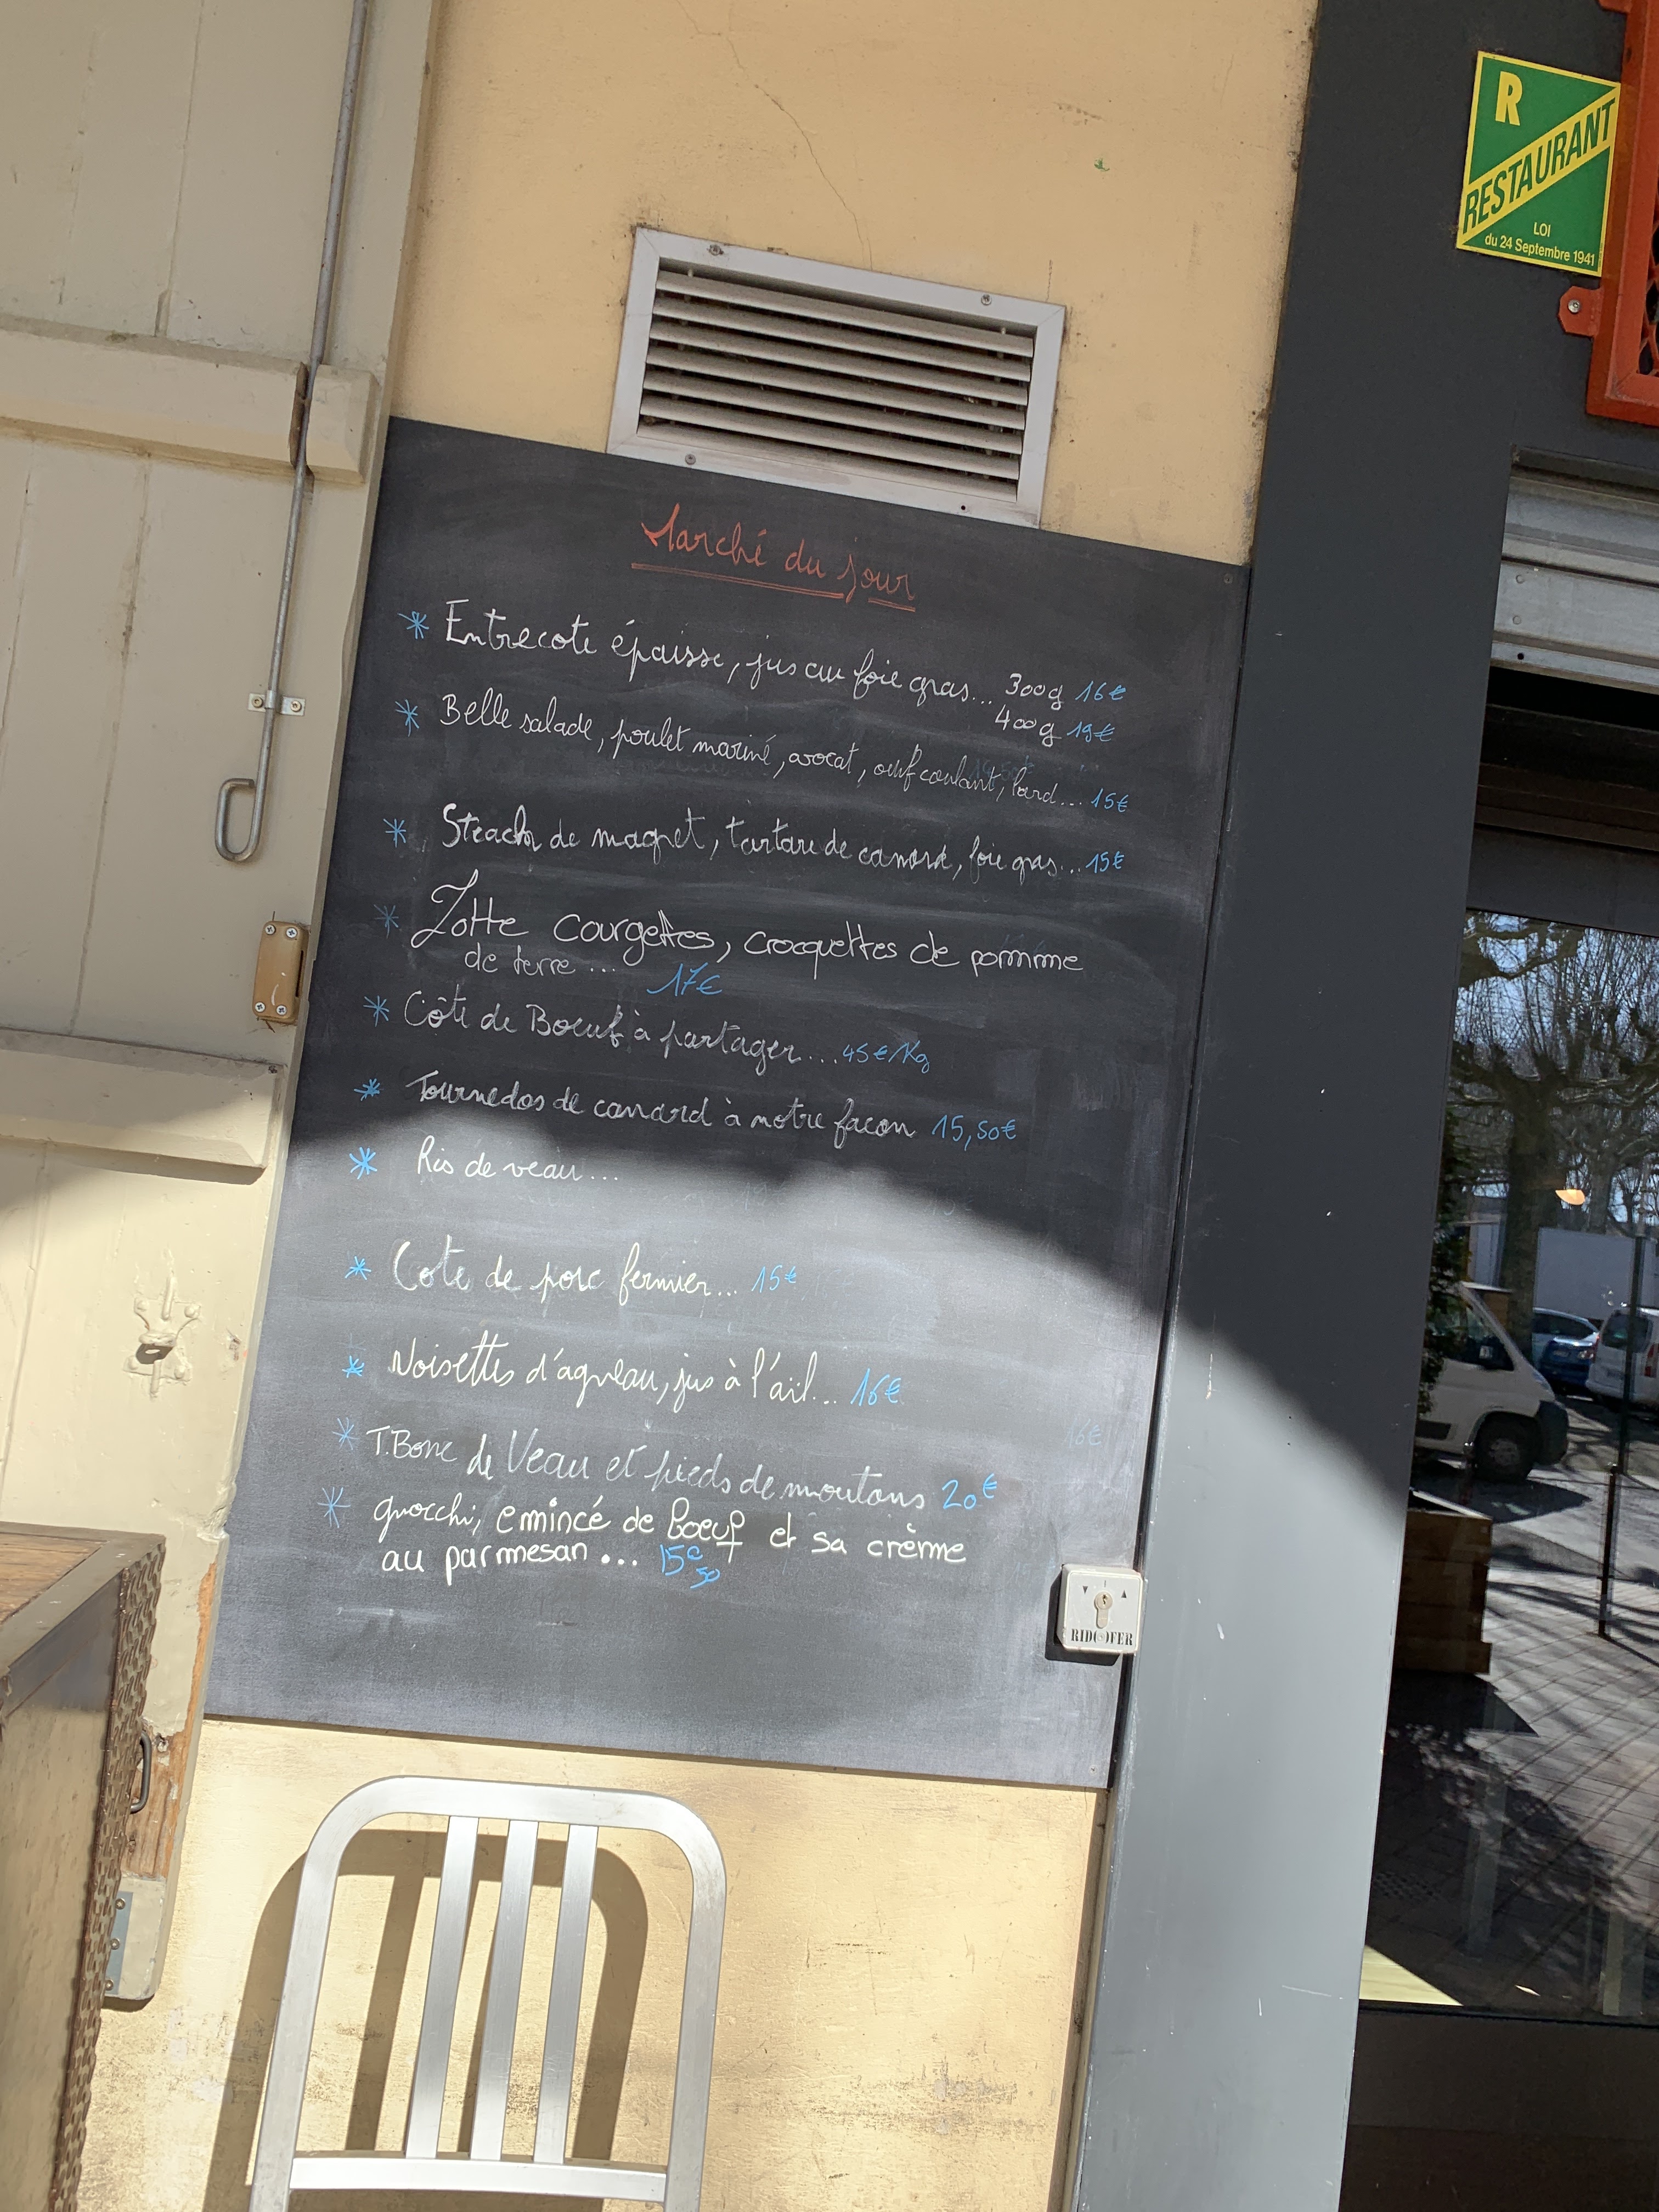 R
RESTAURANT
LOI
du 24 Septembre 1941
Marché du jour
* Entrecote épaisse, jus au foie gras... 300g 16€
400g 19€
* Belle salade, poulet mariné, avocat, oeuf coulant, lard... 15€
* Steack de magret, tartare de canard, foie gras... 15€
* Lotte courgettes, crocquettes de pomme
de terre ... 17€
* Côte de Boeuf à partager... 45€/Kg
* Tournedos de canard à notre facon 15,50€
* Ris de veau...
* Cote de porc fermier... 15€
* Noisettes d'agneau, jus à l'ail... 16€
16€
* T.Bone de Veau et pieds de moutons 20€
* gnocchi, emincé de boeuf et sa crème
au parmesan ... 15€50
RIDOFER